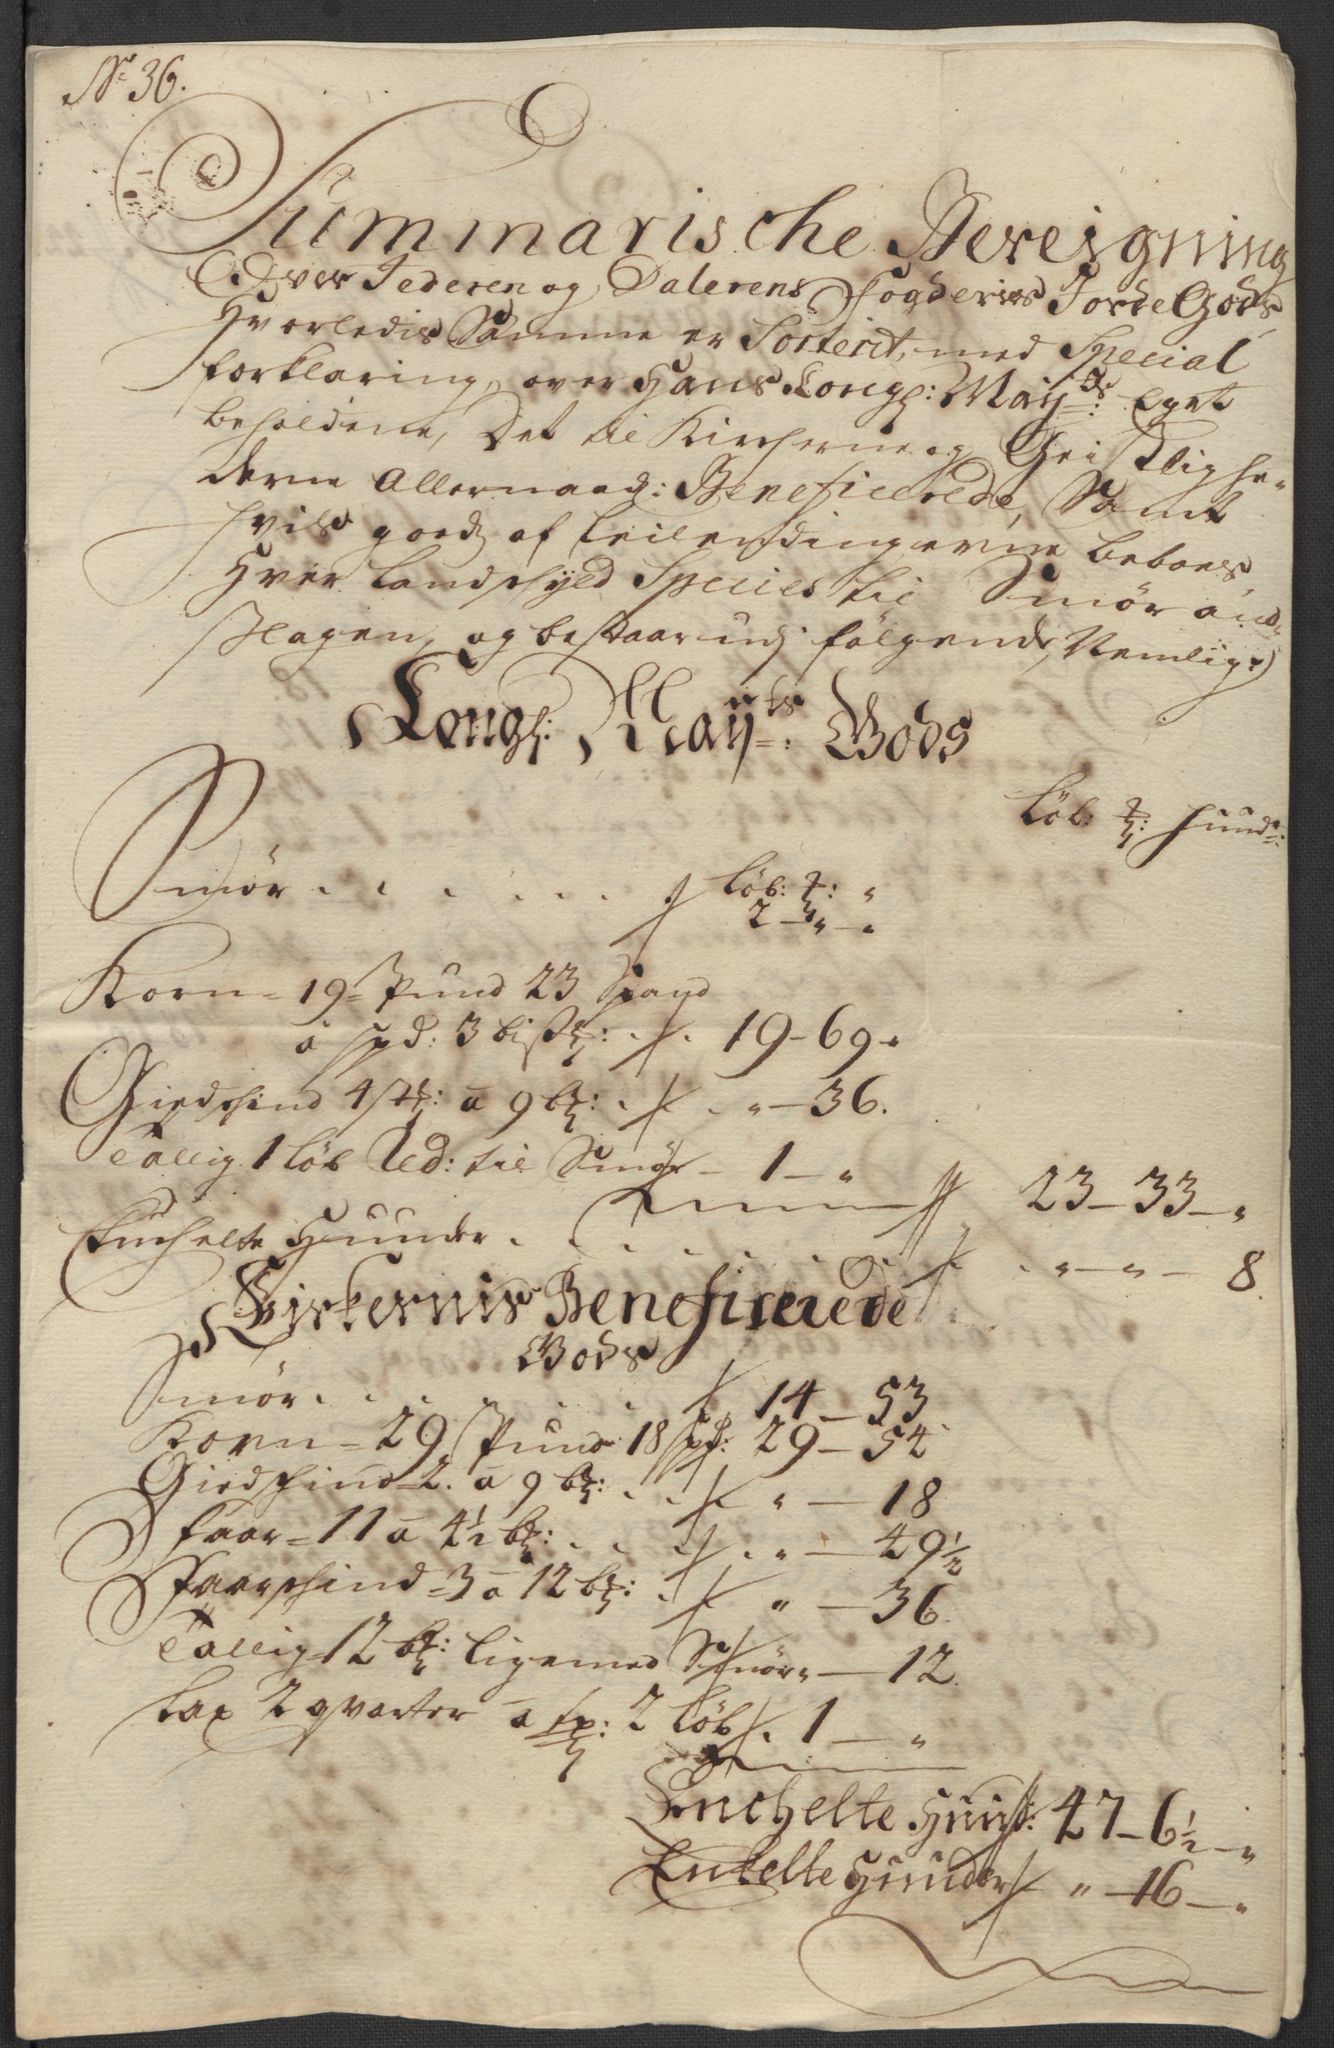 No 36.
Summarische Bereigning
Over Jederen og Dalerens Fogderies Jorde Gods,
Hvorledis Samme er Sorterit, med Special
forklaring, over Hans Kongl: Mayts: Eget
beholdene, Det til Kircherne og Geistlighe-
derne Allernaad: Beneficerede, Samt
hvis goeds af Leilendingerne beboes
Hver Landschyld Species til Smør
Slagen, og bestaar udj følgende, Nemlig:
Kongl: Mayts: Gods
Løb: ℔: Hund:
Smør . . . . . . Løb: ℔: "
2 - " - "
Korn = 19 = Pund 23 Spand
a spd: 3 bis℔: . 19 - 69 -
Giedschind 4 st: a 9 b℔: . . " - 36.
Tallig 1 Løb Ud: til Smør - 1 - "
23 - 33 - "
Enchelte Huuder . . . . . " - " - 8
Kirkernis Beneficerede
Gods
Smør . . . . 14 - 53
Korn = 29 Pund 18 spd: 29 - 54
Giedschind 2. a 9 b℔: . . " - 18
Faar = 11 a 4½ b℔: . . . " - 49½
Faarschind = 3 a 12 b℔: . " - 36
Tallig 12 b℔: ligemed Smør " - 12
Lax 2 qvarter a sp: 2 Løb . 1 - "
Enchelte Huud: 47 - 6½ - "
Enkelte Huuder " - 16 - "